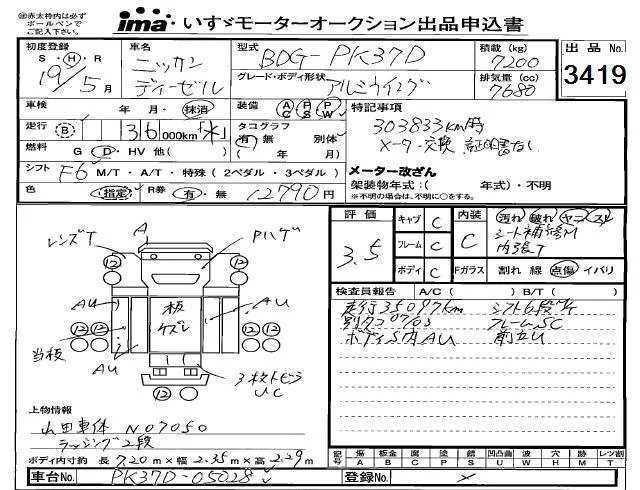 ㊟赤太枠内は必ず
ボールペンで
ご記入下さい。
ima・いすゞモーターオークション出品申込書
初度登録 車名 型式 積載 (kg) 出品 No.
S・H・R ニッサン BDG-PK37D 7200
19年5月 ディーゼル グレード・ボディ形状 アルミウイング 排気量 (cc) 7680 3419
車検 年 月・抹消 装備 AC PS PW 特記事項
走行 B 36000km 水 タコグラフ 有 無 別体 303833km時
燃料 G D HV 他( ) ( 年 月) メーター交換 証明書なし
シフト F6 M/T・A/T・特殊 (2ペダル・3ペダル) メーター改ざん
色 指定 R券 有・無 12790円 架装物年式:( 年式)・不明
※不明の場合は、不明に○をする。
評価 3.5 キャブ C 内装 C 汚れ 破れ ヤニ スレ
フレーム C シート補修M
内張T
ボディ C Fガラス 割れ 線 点傷 イバリ
レンズT A Pハゲ
12 12
AU 板 AU
ケズレ
12 12
当板 AU
3枚トビラ
UC
12
検査員報告 A/C ( ) B/T ( )
走行35097km シフト6段M/T
別タコ0703 フレームSC
ボディS内AU 前立U
上物情報
山田車体 N07050
ラッシング2段
ボディ内寸約 長 7.20m × 幅 2.35m × 高 2.29m
記号 傷 板金 腐 塗 錆 凹凸曲 波 穴 跡 レンズ割
A B C P S U W H M T
車台No. PK37D-05028 登録No.